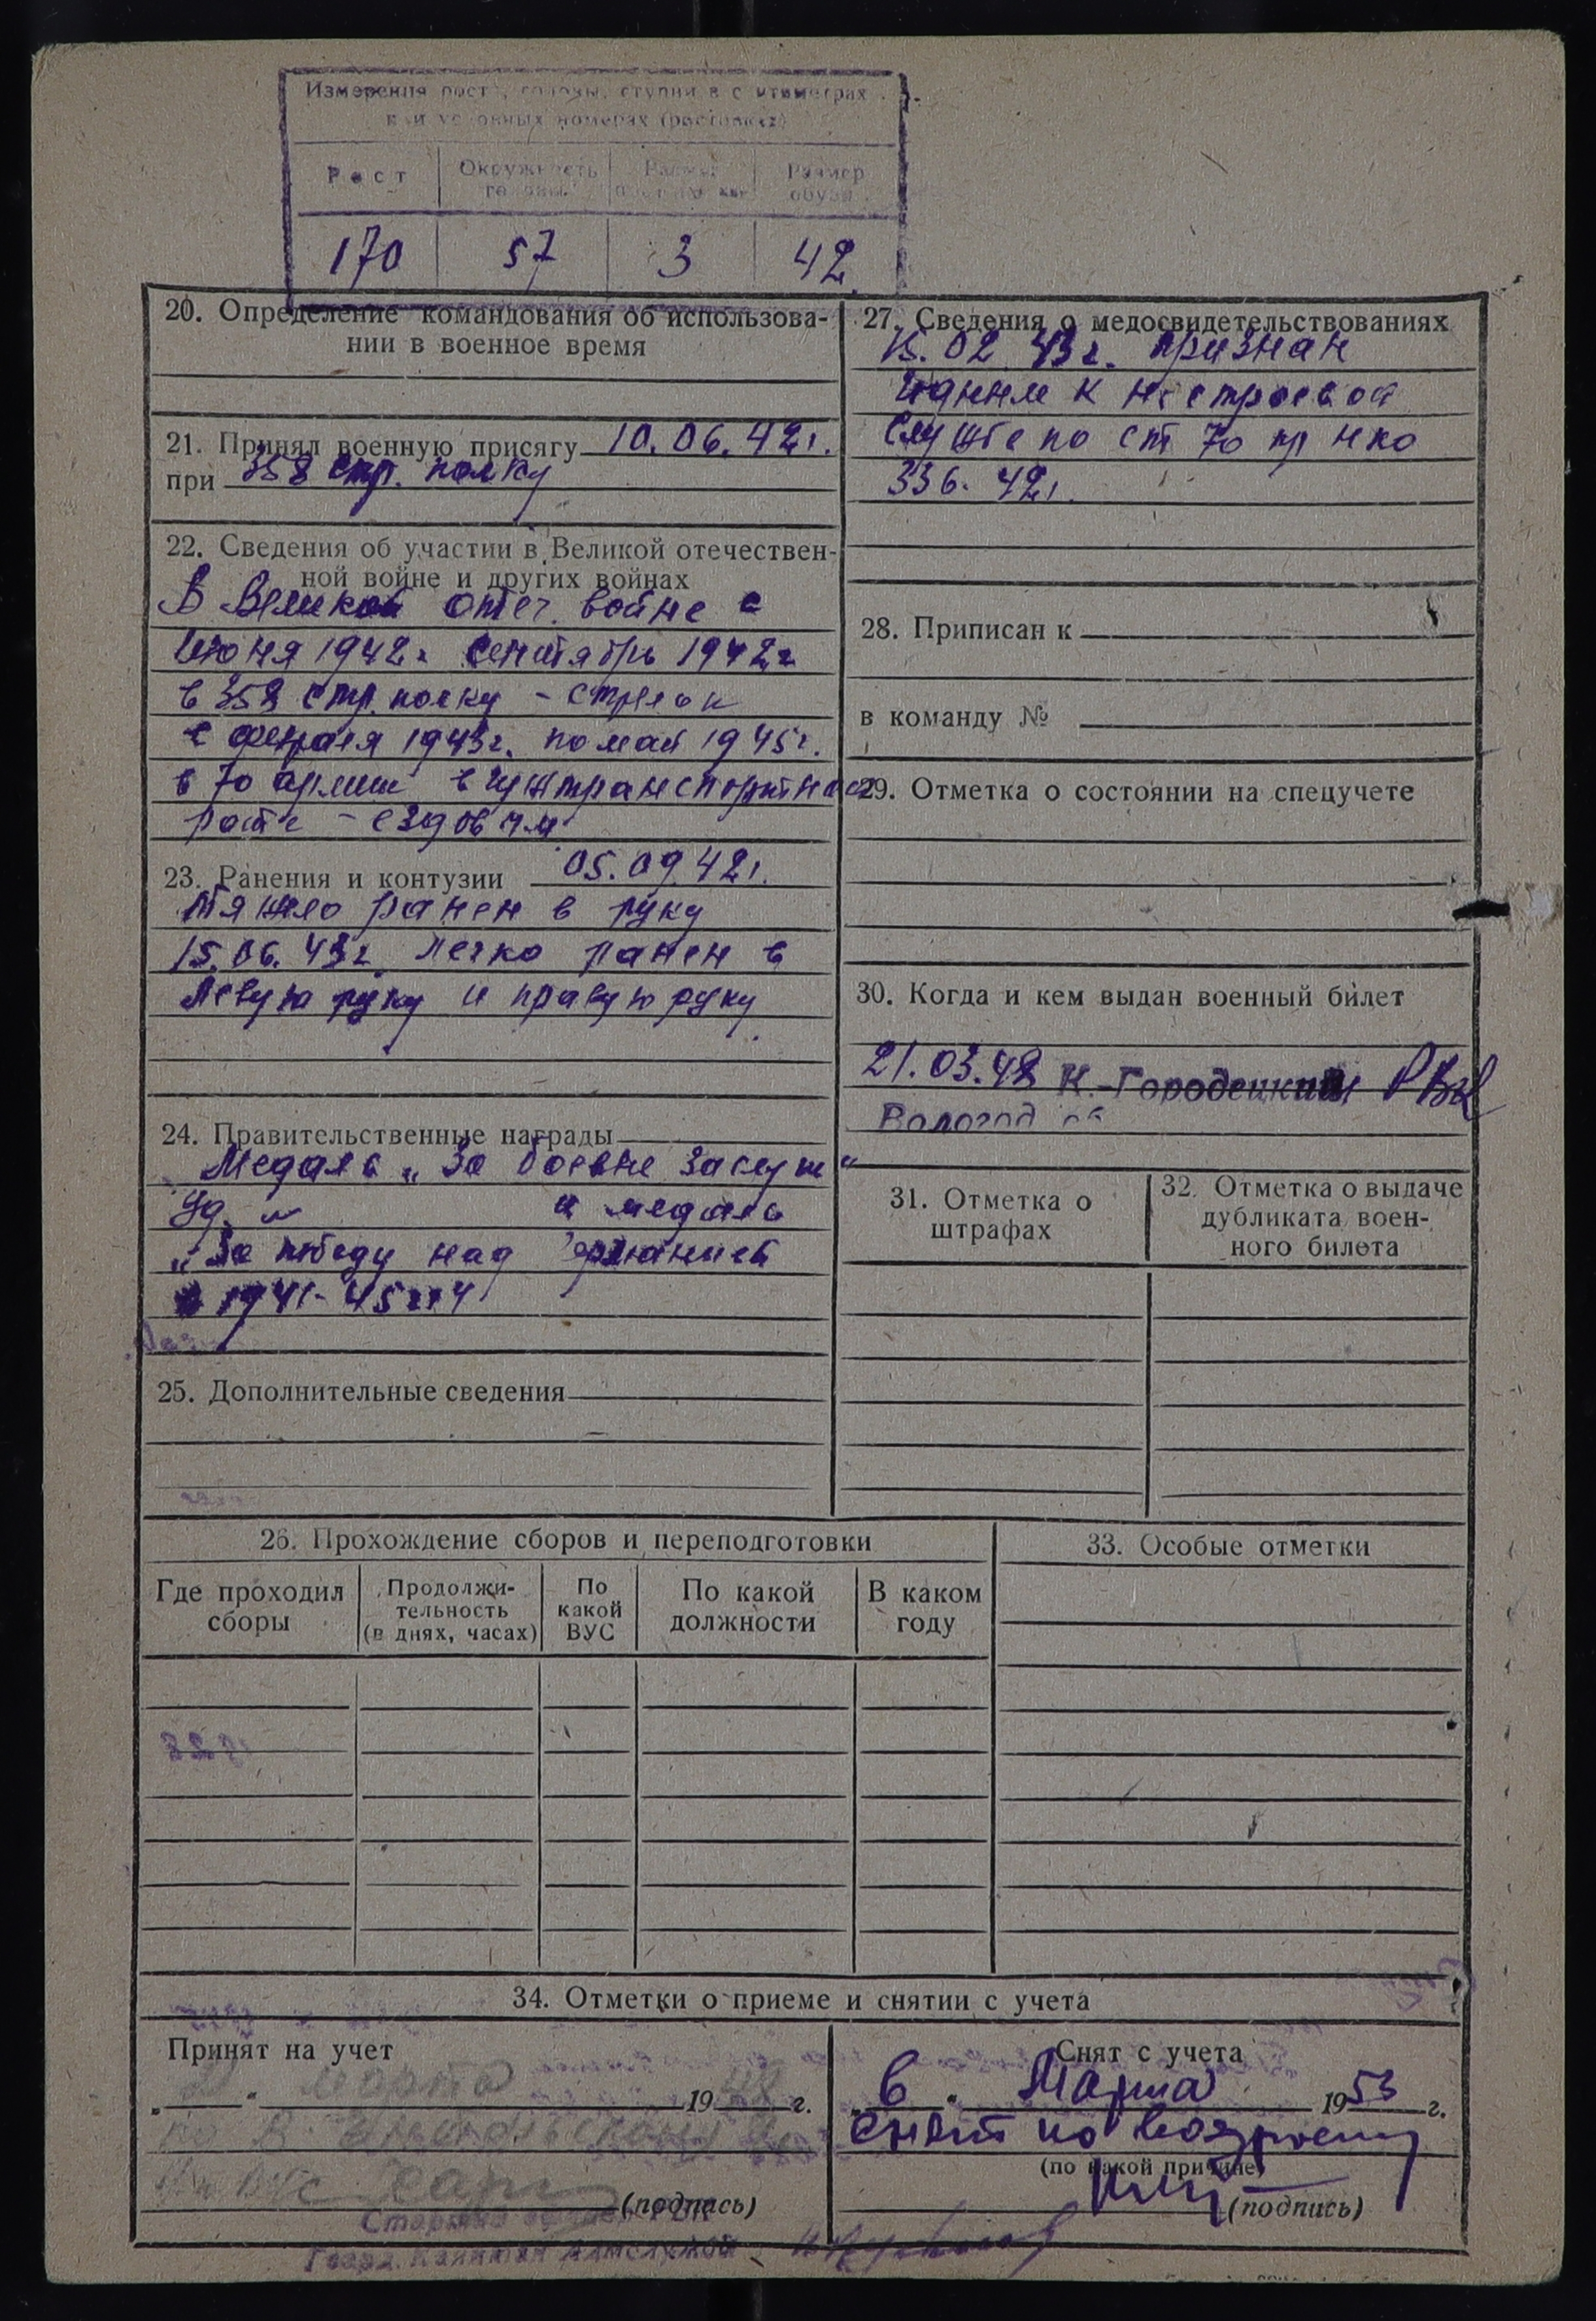 Измерения рост, головы, ступни в с нтиметрах
и условных номерах (ростовках)
Рост
Окружность головы
Размер
Размер обуви
170 57 3 42
20. Определение командования об использова-
нии в военное время
21. Принял военную присягу 10.06.42г.
при 358 стр. полку
22. Сведения об участии в Великой отечествен-
ной войне и других войнах
В Великой отеч. войне с
Июня 1942г сентябрь 1942г
в 358 стр. полку - стрелок
с февраля 1943г. по май 1945г.
в 70 армии в гужтранспортной
роте - ездовым
23. Ранения и контузии 05.09.42г.
тяжело ранен в руку
15.06.43г. легко ранен в
левую руку и правую руку
24. Правительственные награды
Медаль „За боевые заслуги“
и медаль
„За победу над Германией
1941-45гг
25. Дополнительные сведения
26. Прохождение сборов и переподготовки
Где проходил сборы
Продолжи-
тельность
(в днях, часах)
По какой ВУС
По какой должности
В каком году
27. Сведения о медосвидетельствованиях
02 43г. признан
годным к нестроевой
службе по ст 70 пр нко
336. 42г.
28. Приписан к
в команду №
29. Отметка о состоянии на спецучете
30. Когда и кем выдан военный билет
21.03.48 К-Городецким РВК
Вологод об
31. Отметка о
штрафах
32. Отметка о выдаче
дубликата воен-
ного билета
33. Особые отметки
34. Отметки о приеме и снятии с учета
Принят на учет
„ “ марта 1948 г.
(подпись)
Гвард. капитан
Снят с учета
„6“ Марта 1953 г.
снят по возрасту
(по какой причине)
(подпись)